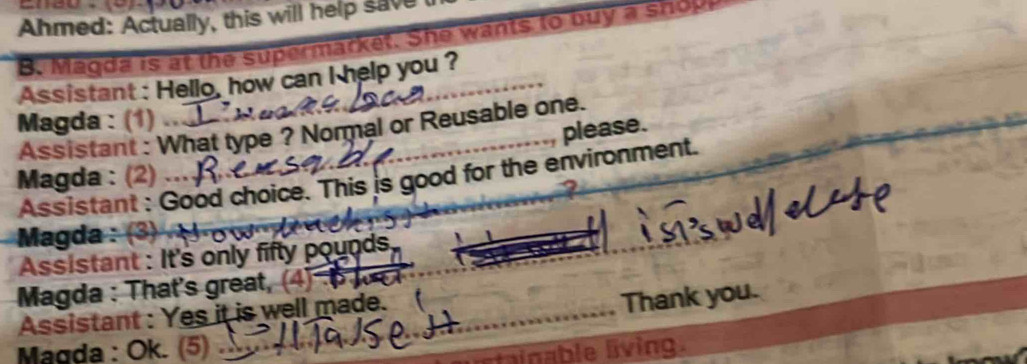 Ahmed: Actually, this will help save
B. Magda is at the supermarket. She wants to buy a shopp
Assistant : Hello, how can I help you ?
Magda : (1) ...
Assistant : What type ? Normal or Reusable one.
Magda : (2) ... Reusable ..., please.
Assistant : Good choice. This is good for the environment.
Magda : (3) ... How much is it ...?
Assistant : It's only fifty pounds.
Magda : That's great, (4) ...
Assistant : Yes it is well made.
Magda : Ok. (5) ... I'll take it ... Thank you.
living.